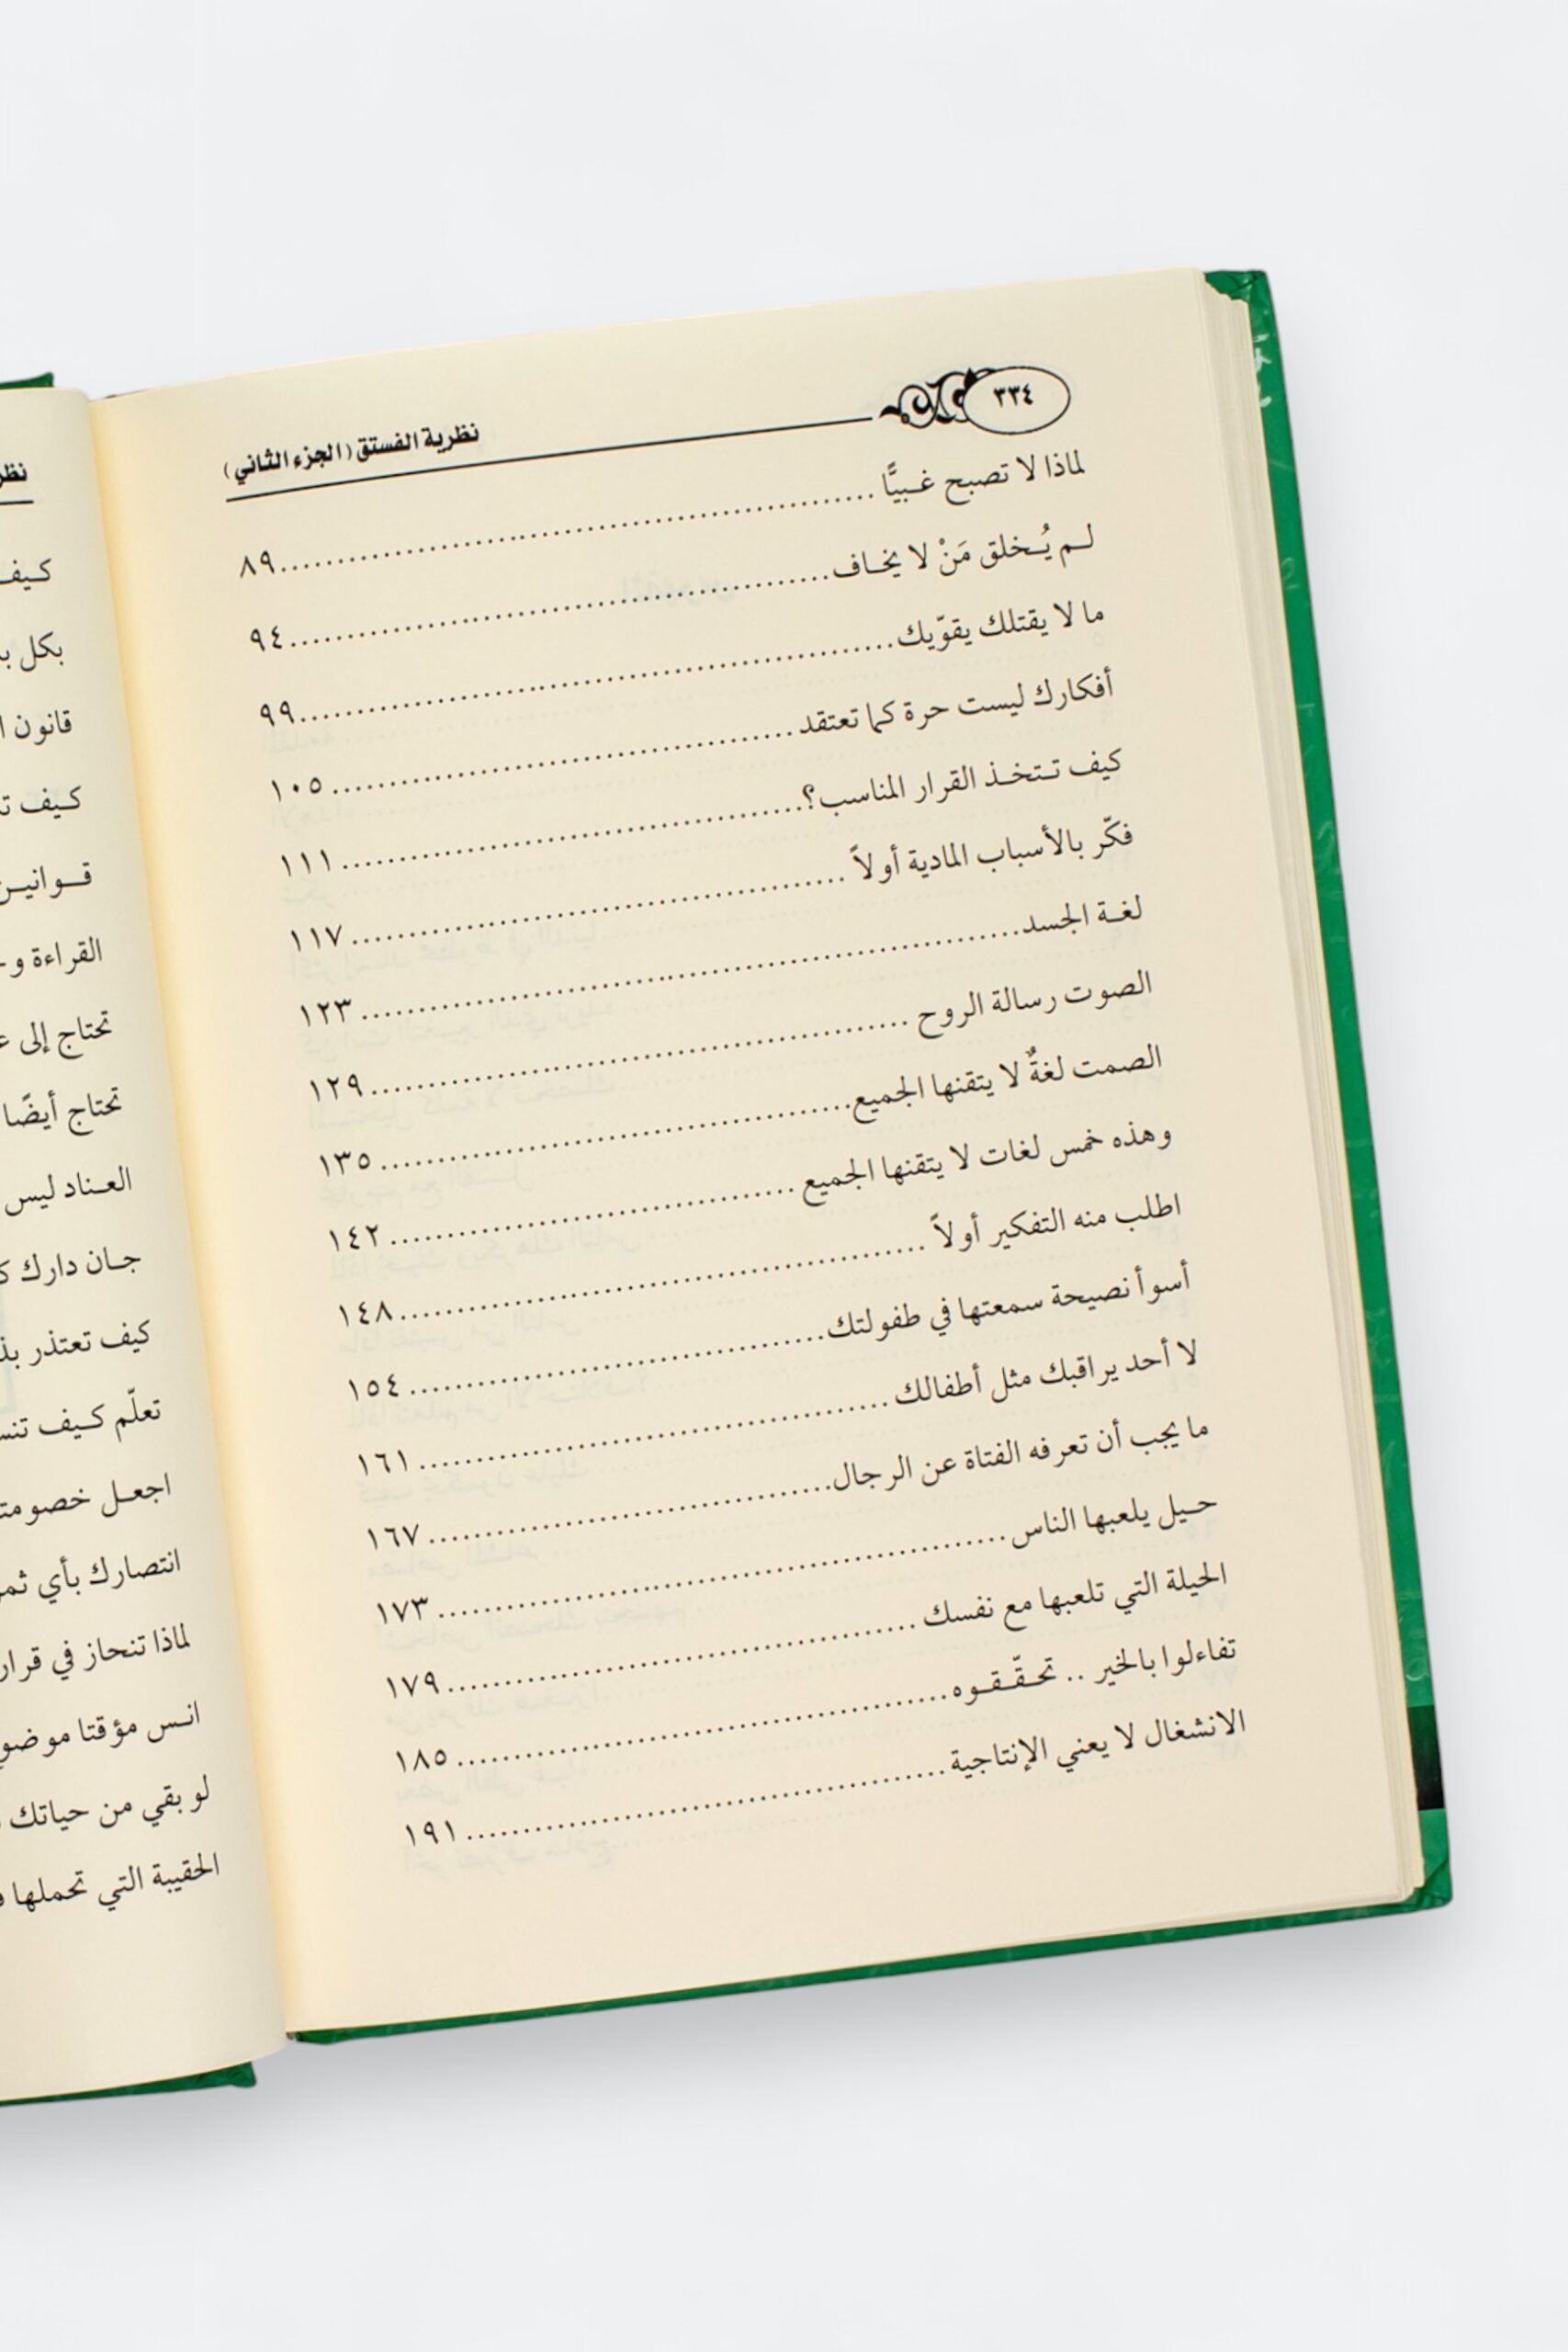 ٣٣٤
نظرية الفستق (الجزء الثاني)
لماذا لا تصبح غبيًّا ................ ٨٩
لم يُخلق مَنْ لا يخاف ................ ٩٤
ما لا يقتلك يقوّيك ................ ٩٩
أفكارك ليست حرة كما تعتقد ................ ١٠٥
كيف تتخذ القرار المناسب؟ ................ ١١١
فكّر بالأسباب المادية أولاً ................ ١١٧
لغة الجسد ................ ١٢٣
الصوت رسالة الروح ................ ١٢٩
الصمت لغةٌ لا يتقنها الجميع ................ ١٣٥
وهذه خمس لغات لا يتقنها الجميع ................ ١٤٢
اطلب منه التفكير أولاً ................ ١٤٨
أسوأ نصيحة سمعتها في طفولتك ................ ١٥٤
لا أحد يراقبك مثل أطفالك ................ ١٦١
ما يجب أن تعرفه الفتاة عن الرجال ................ ١٦٧
حيل يلعبها الناس ................ ١٧٣
الحيلة التي تلعبها مع نفسك ................ ١٧٩
تفاءلوا بالخير .. تحقّقوه ................ ١٨٥
الانشغال لا يعني الإنتاجية ................ ١٩١
كيف
بكل
قانون
كيف
قوانين
القراءة
تحتاج إلى
تحتاج أيضًا
العناد ليس
جان دارك
كيف تعتذر
تعلّم كيف
اجعل
انتصارك بأي
لماذا تنحاز في
انس مؤقتا
لو بقي من حياتك
الحقيبة التي تحملها